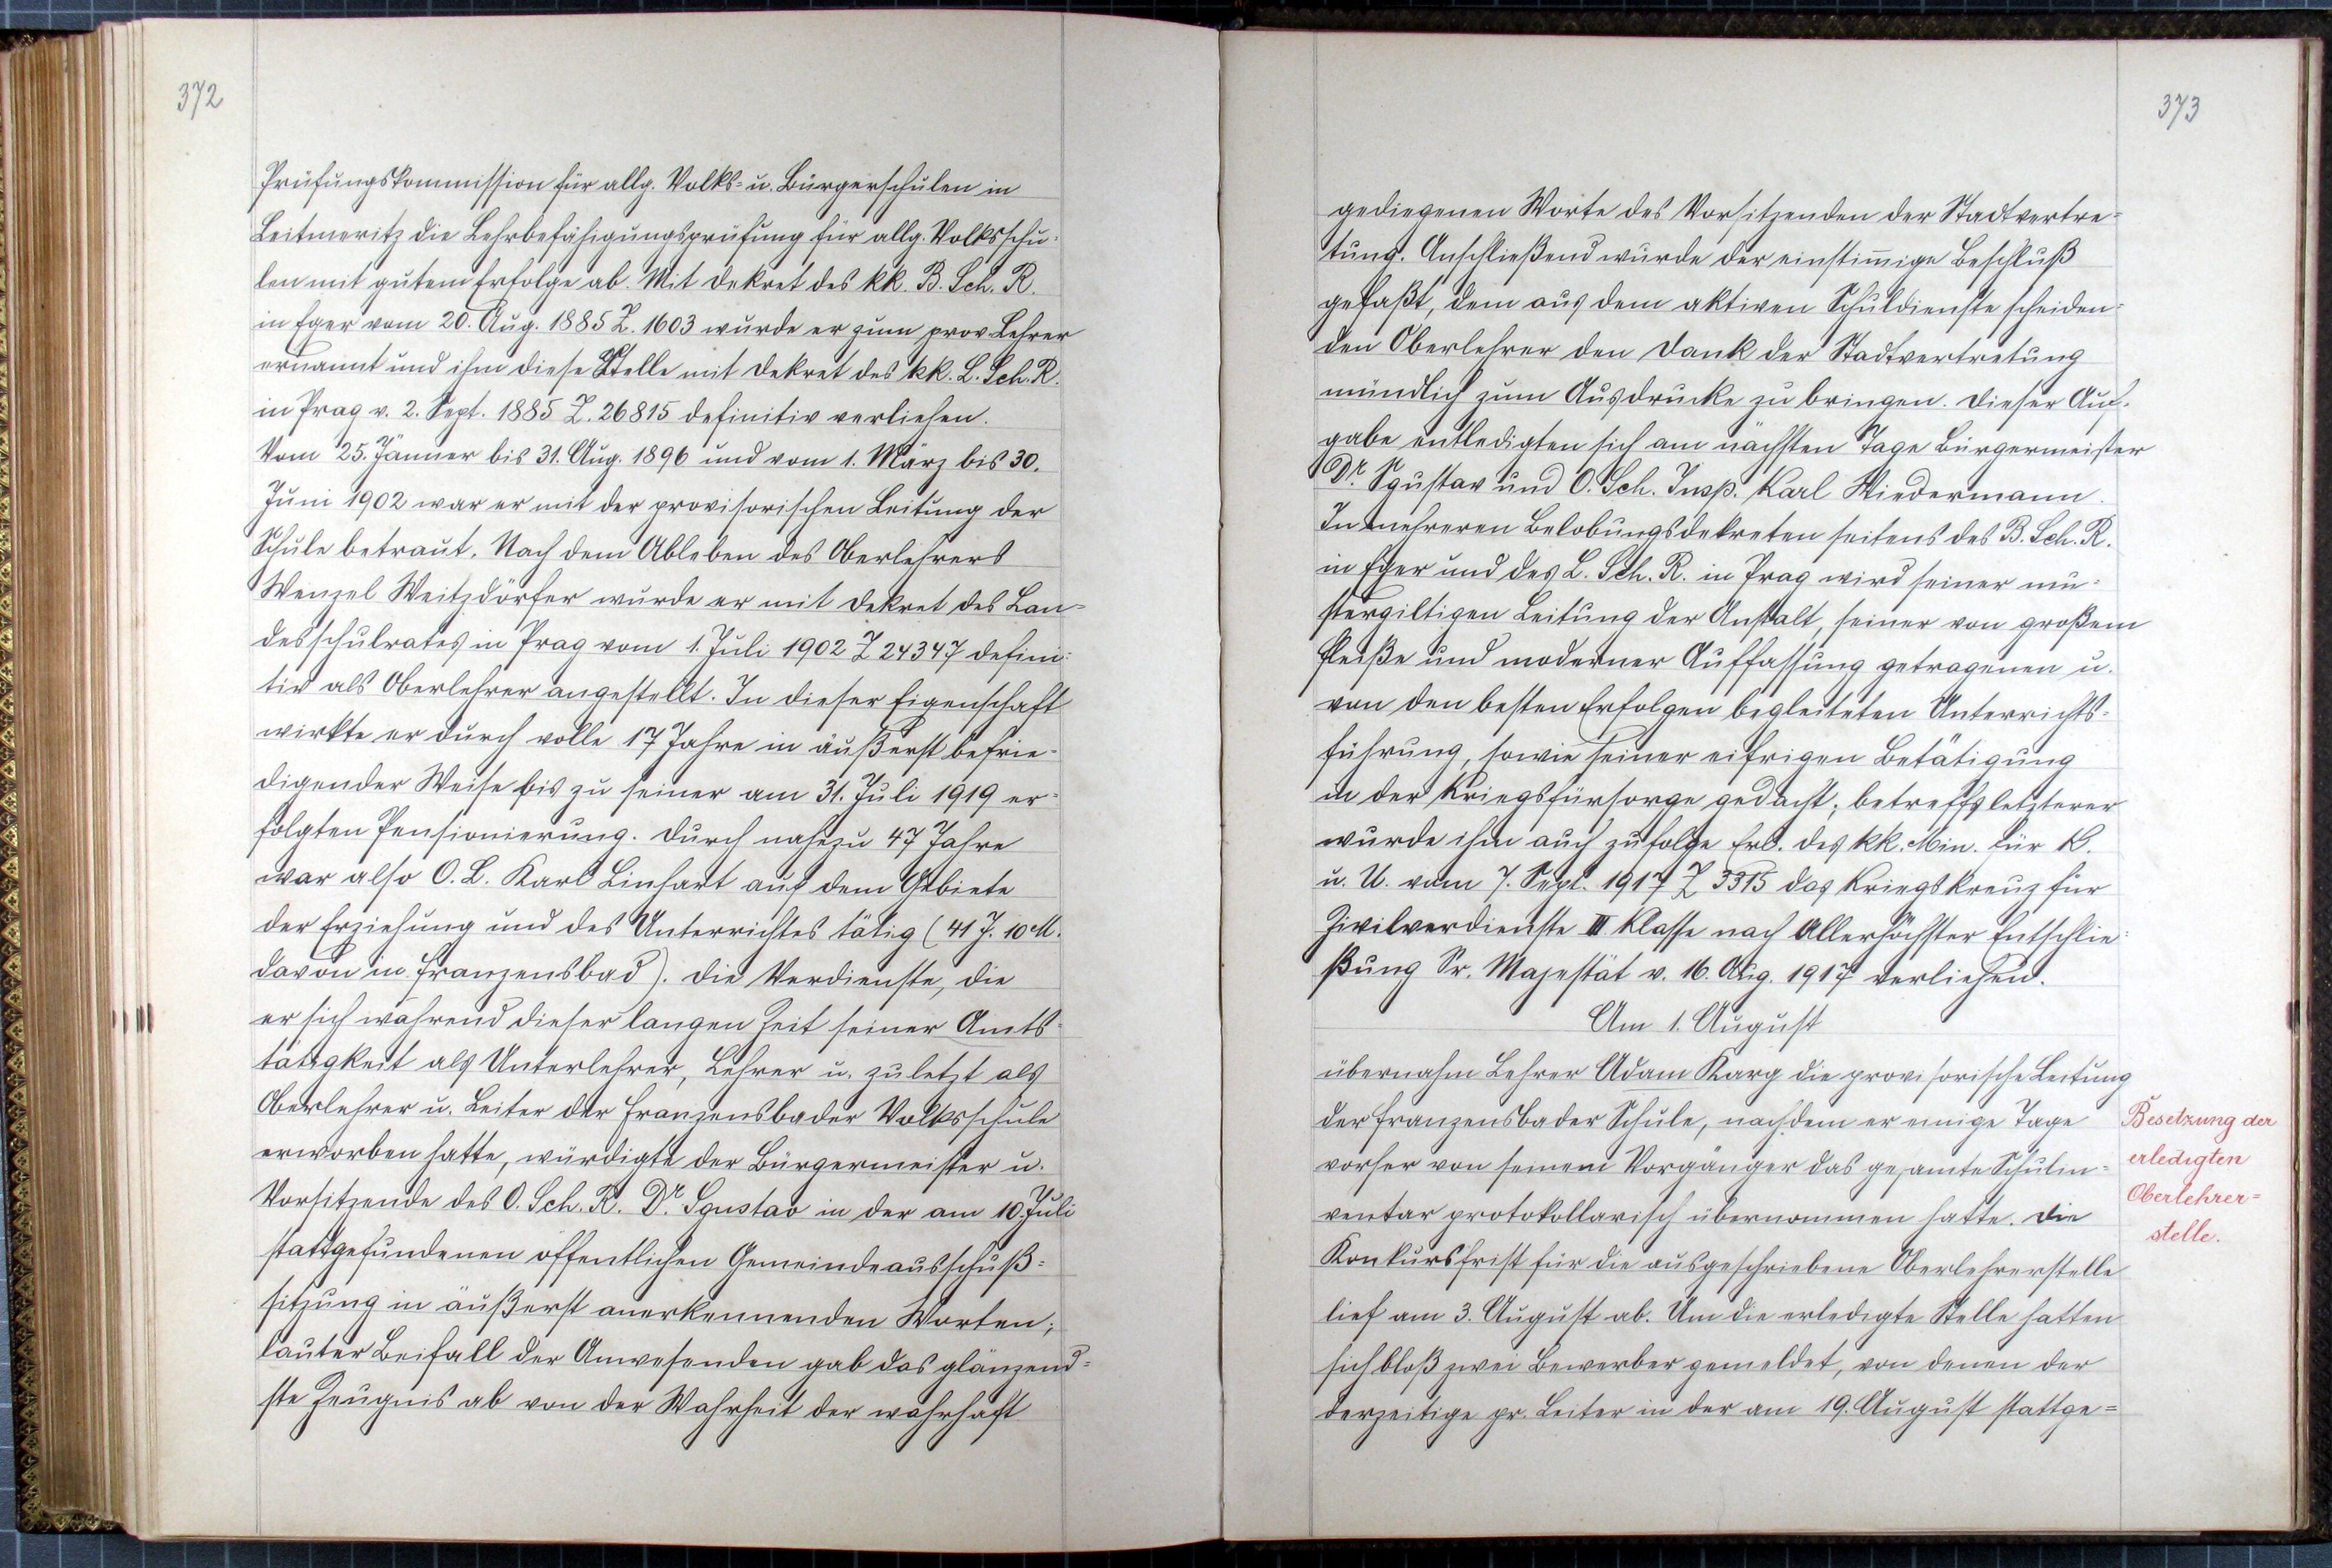 372
Prüfungskommission für allg. Volks- u. Bürgerschulen in
Leitmeritz die Lehrbefähigungsprüfung für allg. Volksschu-
len mit gutem Erfolge ab. Mit Dekret des kk. B. Sch. R.
in Eger vom 20. Aug. 1885 Z. 1603 wurde er zum prov. Lehrer
ernannt und ihm diese Stelle mit Dekret des kk. L. Sch. R.
in Prag v. 2. Sept. 1885 Z. 26815 definitiv verliehen.
Vom 25. Jänner bis 31. Aug. 1896 und vom 1. März bis 30.
Juni 1902 war er mit der provisorischen Leitung der
Schule betraut. Nach dem Ableben des Oberlehrers
Wenzel Weitzdörfer wurde er mit Dekret des Lan-
desschulrates in Prag vom 1. Juli 1902 Z 24347 defini-
tiv als Oberlehrer angestellt. In dieser Eigenschaft
wirkte er durch volle 17 Jahre in äußerst befrie-
digender Weise bis zu seiner am 31. Juli 1919 er-
folgten Pensionierung. Durch nahezu 47 Jahre
war also O. L. Karl Linhart auf dem Gebiete
der Erziehung und des Unterrichtes tätig (41 J. 10 M.
davon in Franzensbad). Die Verdienste, die
er sich während dieser langen Zeit seiner Amts-
tätigkeit als Unterlehrer, Lehrer u. zuletzt als
Oberlehrer u. Leiter der Franzensbader Volksschule
erworben hatte, würdigte der Bürgermeister u.
Vorsitzende des O. Sch. R. Dr. Sgustav in der am 10. Juli
stattgefundenen öffentlichen Gemeindeausschuß-
sitzung in äußerst anerkennenden Worten;
lauter Beifall der Anwesenden gab das glänzend-
ste Zeugnis ab von der Wahrheit der wahrhaft
373
gediegenen Worte des Vorsitzenden der Stadtvertre-
tung. Anschließend wurde der einstimmige Beschluß
gefaßt, dem aus dem aktiven Schuldienste scheiden-
den Oberlehrer den Dank der Stadtvertretung
mündlich zum Ausdrucke zu bringen. Dieser Auf-
gabe entledigten sich am nächsten Tage Bürgermeister
Dr. Sgustav und O. Sch. Insp. Karl Wiedermann.
In mehreren Belobungsdekreten seitens des B. Sch. R.
in Eger und des L. Sch. R. in Prag wird seiner mu-
stergiltigen Leitung der Anstalt, seiner von großem
Fleiße und moderner Auffassung getragenen u.
von den besten Erfolgen begleiteten Unterrichts-
führung, sowie seiner eifrigen Betätigung
in der Kriegsfürsorge gedacht; betreffs letzterer
wurde ihm auch zufolge Erl. des kk. Min. für K.
u. U. vom 7. Sept. 1917 Z 3315 das Kriegskreuz für
Zivilverdienste III Klasse nach Allerhöchster Entschlie-
ßung Sr. Majestät v. 16. Aug. 1917 verliehen.
Am 1. August
übernahm Lehrer Adam Karg die provisorische Leitung
der Franzensbader Schule, nachdem er einige Tage
vorher von seinem Vorgänger das gesamte Schulin-
ventar protokollarisch übernommen hatte. Die
Konkursfrist für die ausgeschriebene Oberlehrerstelle
lief am 3. August ab. Um die erledigte Stelle hatten
sich bloß zwei Bewerber gemeldet, von denen der
derzeitige pr. Leiter in der am 19. August stattge-
Besetzung der
erledigten
Oberlehrer-
stelle.